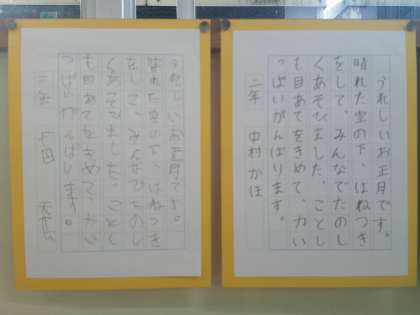 うれしいお正月です。
晴れた空の下、はねつき
をして、みんなでたのし
くあそびました。ことし
も目あてをきめて、力い
っぱいがんばります。
二年 中村かほ
うれしいお正月です。
晴れた空の下、はねつき
をして、みんなでたのし
くあそびました。ことし
も目あてをきめて、力い
っぱいがんばります。
二年